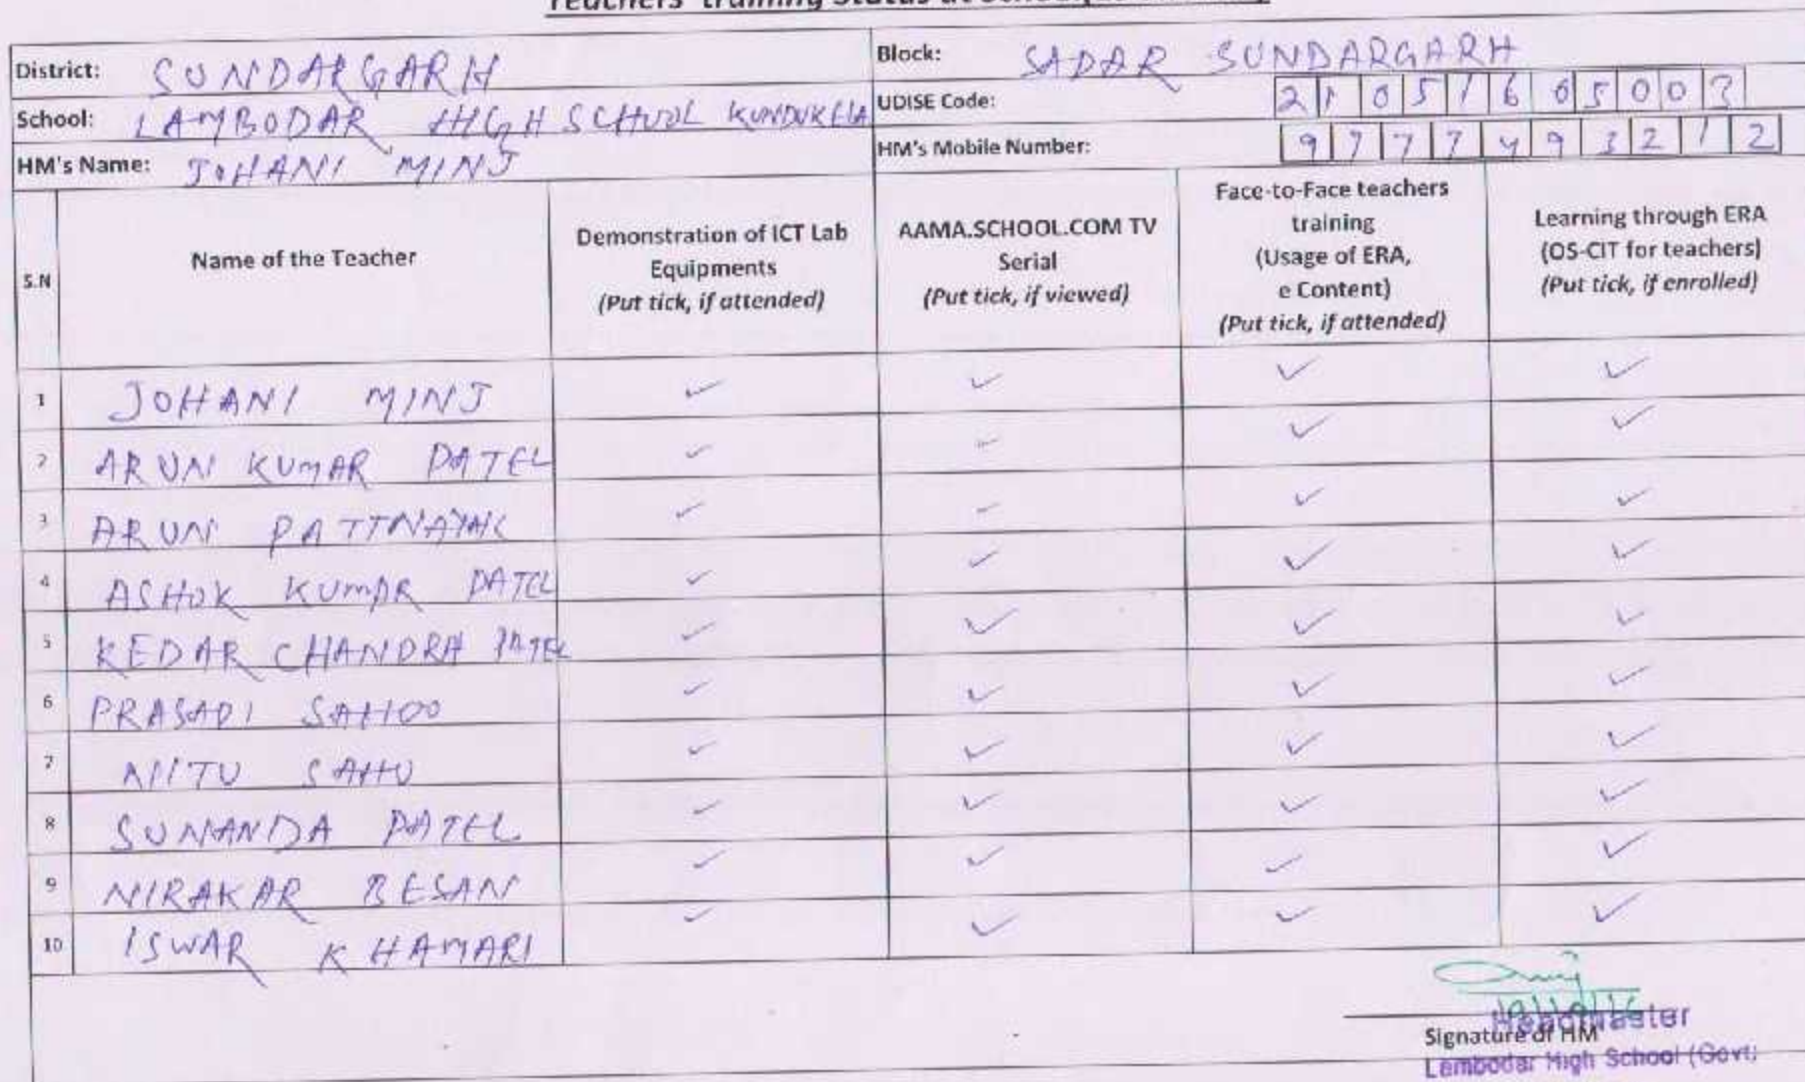 Teachers' Training Status at School
District: SUNDARGARH
Block: SADAR SUNDARGARH
School: LAMBODAR HIGH SCHOOL KUNDUKELA
UDISE Code: 21051605003
HM's Name: JOHANI MINJ
HM's Mobile Number: 9777493212
S.N
Name of the Teacher
Demonstration of ICT Lab
Equipments
(Put tick, if attended)
AAMA.SCHOOL.COM TV
Serial
(Put tick, if viewed)
Face-to-Face teachers
training
(Usage of ERA,
e Content)
(Put tick, if attended)
Learning through ERA
(OS-CIT for teachers)
(Put tick, if enrolled)
1 JOHANI MINJ ✓ ✓ ✓ ✓
2 ARUN KUMAR PATEL ✓ ✓ ✓ ✓
3 ARUN PATTNAYAK ✓ ✓ ✓ ✓
4 ASHOK KUMAR PATEL ✓ ✓ ✓ ✓
5 KEDAR CHANDRA PATEL ✓ ✓ ✓ ✓
6 PRASADI SAHOO ✓ ✓ ✓ ✓
7 NITU SAHU ✓ ✓ ✓ ✓
8 SUNANDA PATEL ✓ ✓ ✓ ✓
9 NIRAKAR BESAN ✓ ✓ ✓ ✓
10 ISWAR KHAMARI ✓ ✓ ✓ ✓
Signature of HM
Headmaster
Lambodar High School (Govt)